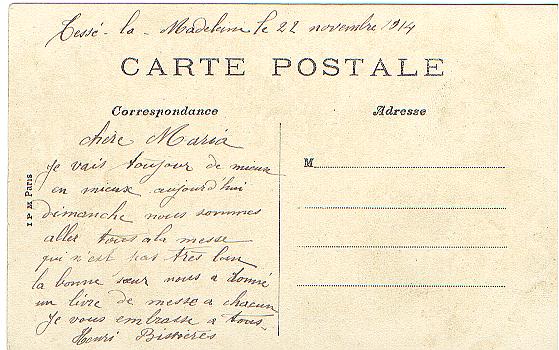 Tessé-la-Madeleine le 22 novembre 1914
CARTE POSTALE
Correspondance
Adresse
chere Maria
je vais toujour de mieux
en mieux aujourd'hui
dimanche nous sommes
aller tous a la messe
qui n'est pas très loin
la bonne sœur nous a donné
un livre de messe a chacun
Je vous embrasse a tous
Henri
M
I P M Paris